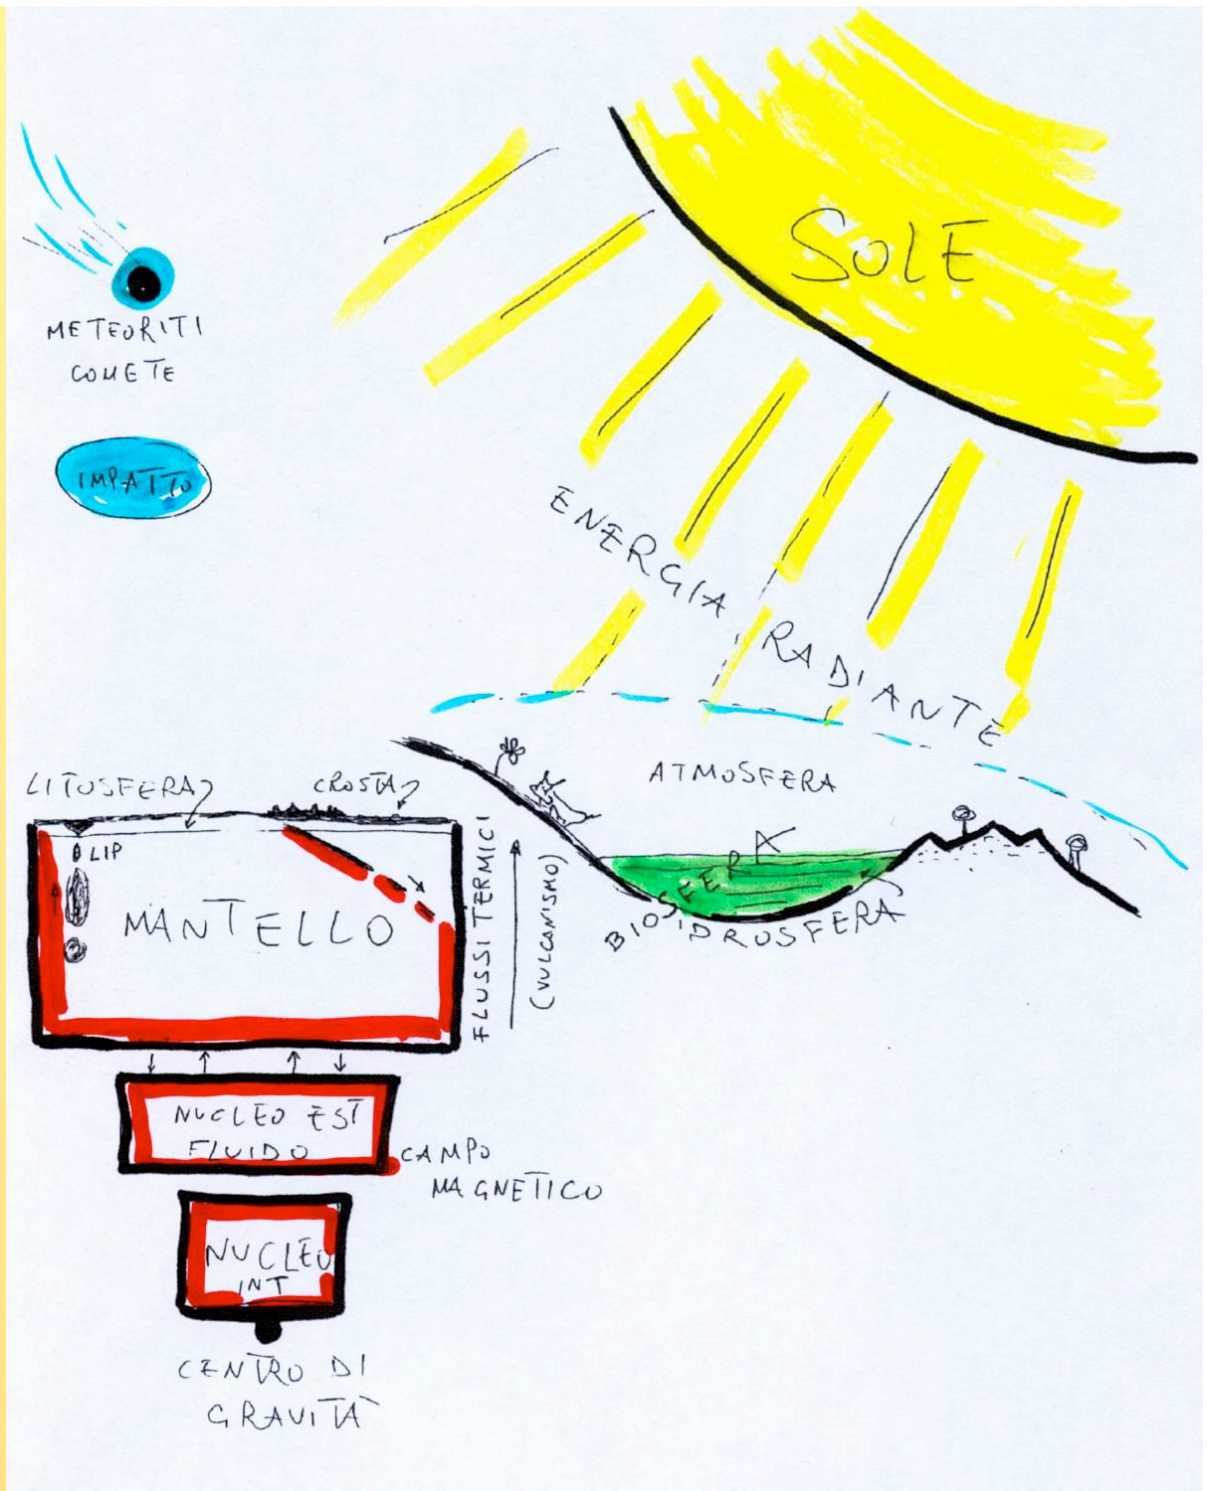 SOLE
METEORITI
COMETE
IMPATTO
ENERGIA RADIANTE
ATMOSFERA
LITOSFERA
CROSTA
LIP
MANTELLO
FLUSSI TERMICI
(VULCANISMO)
BIOSFERA
IDROSFERA
NUCLEO EST
FLUIDO
CAMPO
MAGNETICO
NUCLEO
INT
CENTRO DI
GRAVITÀ